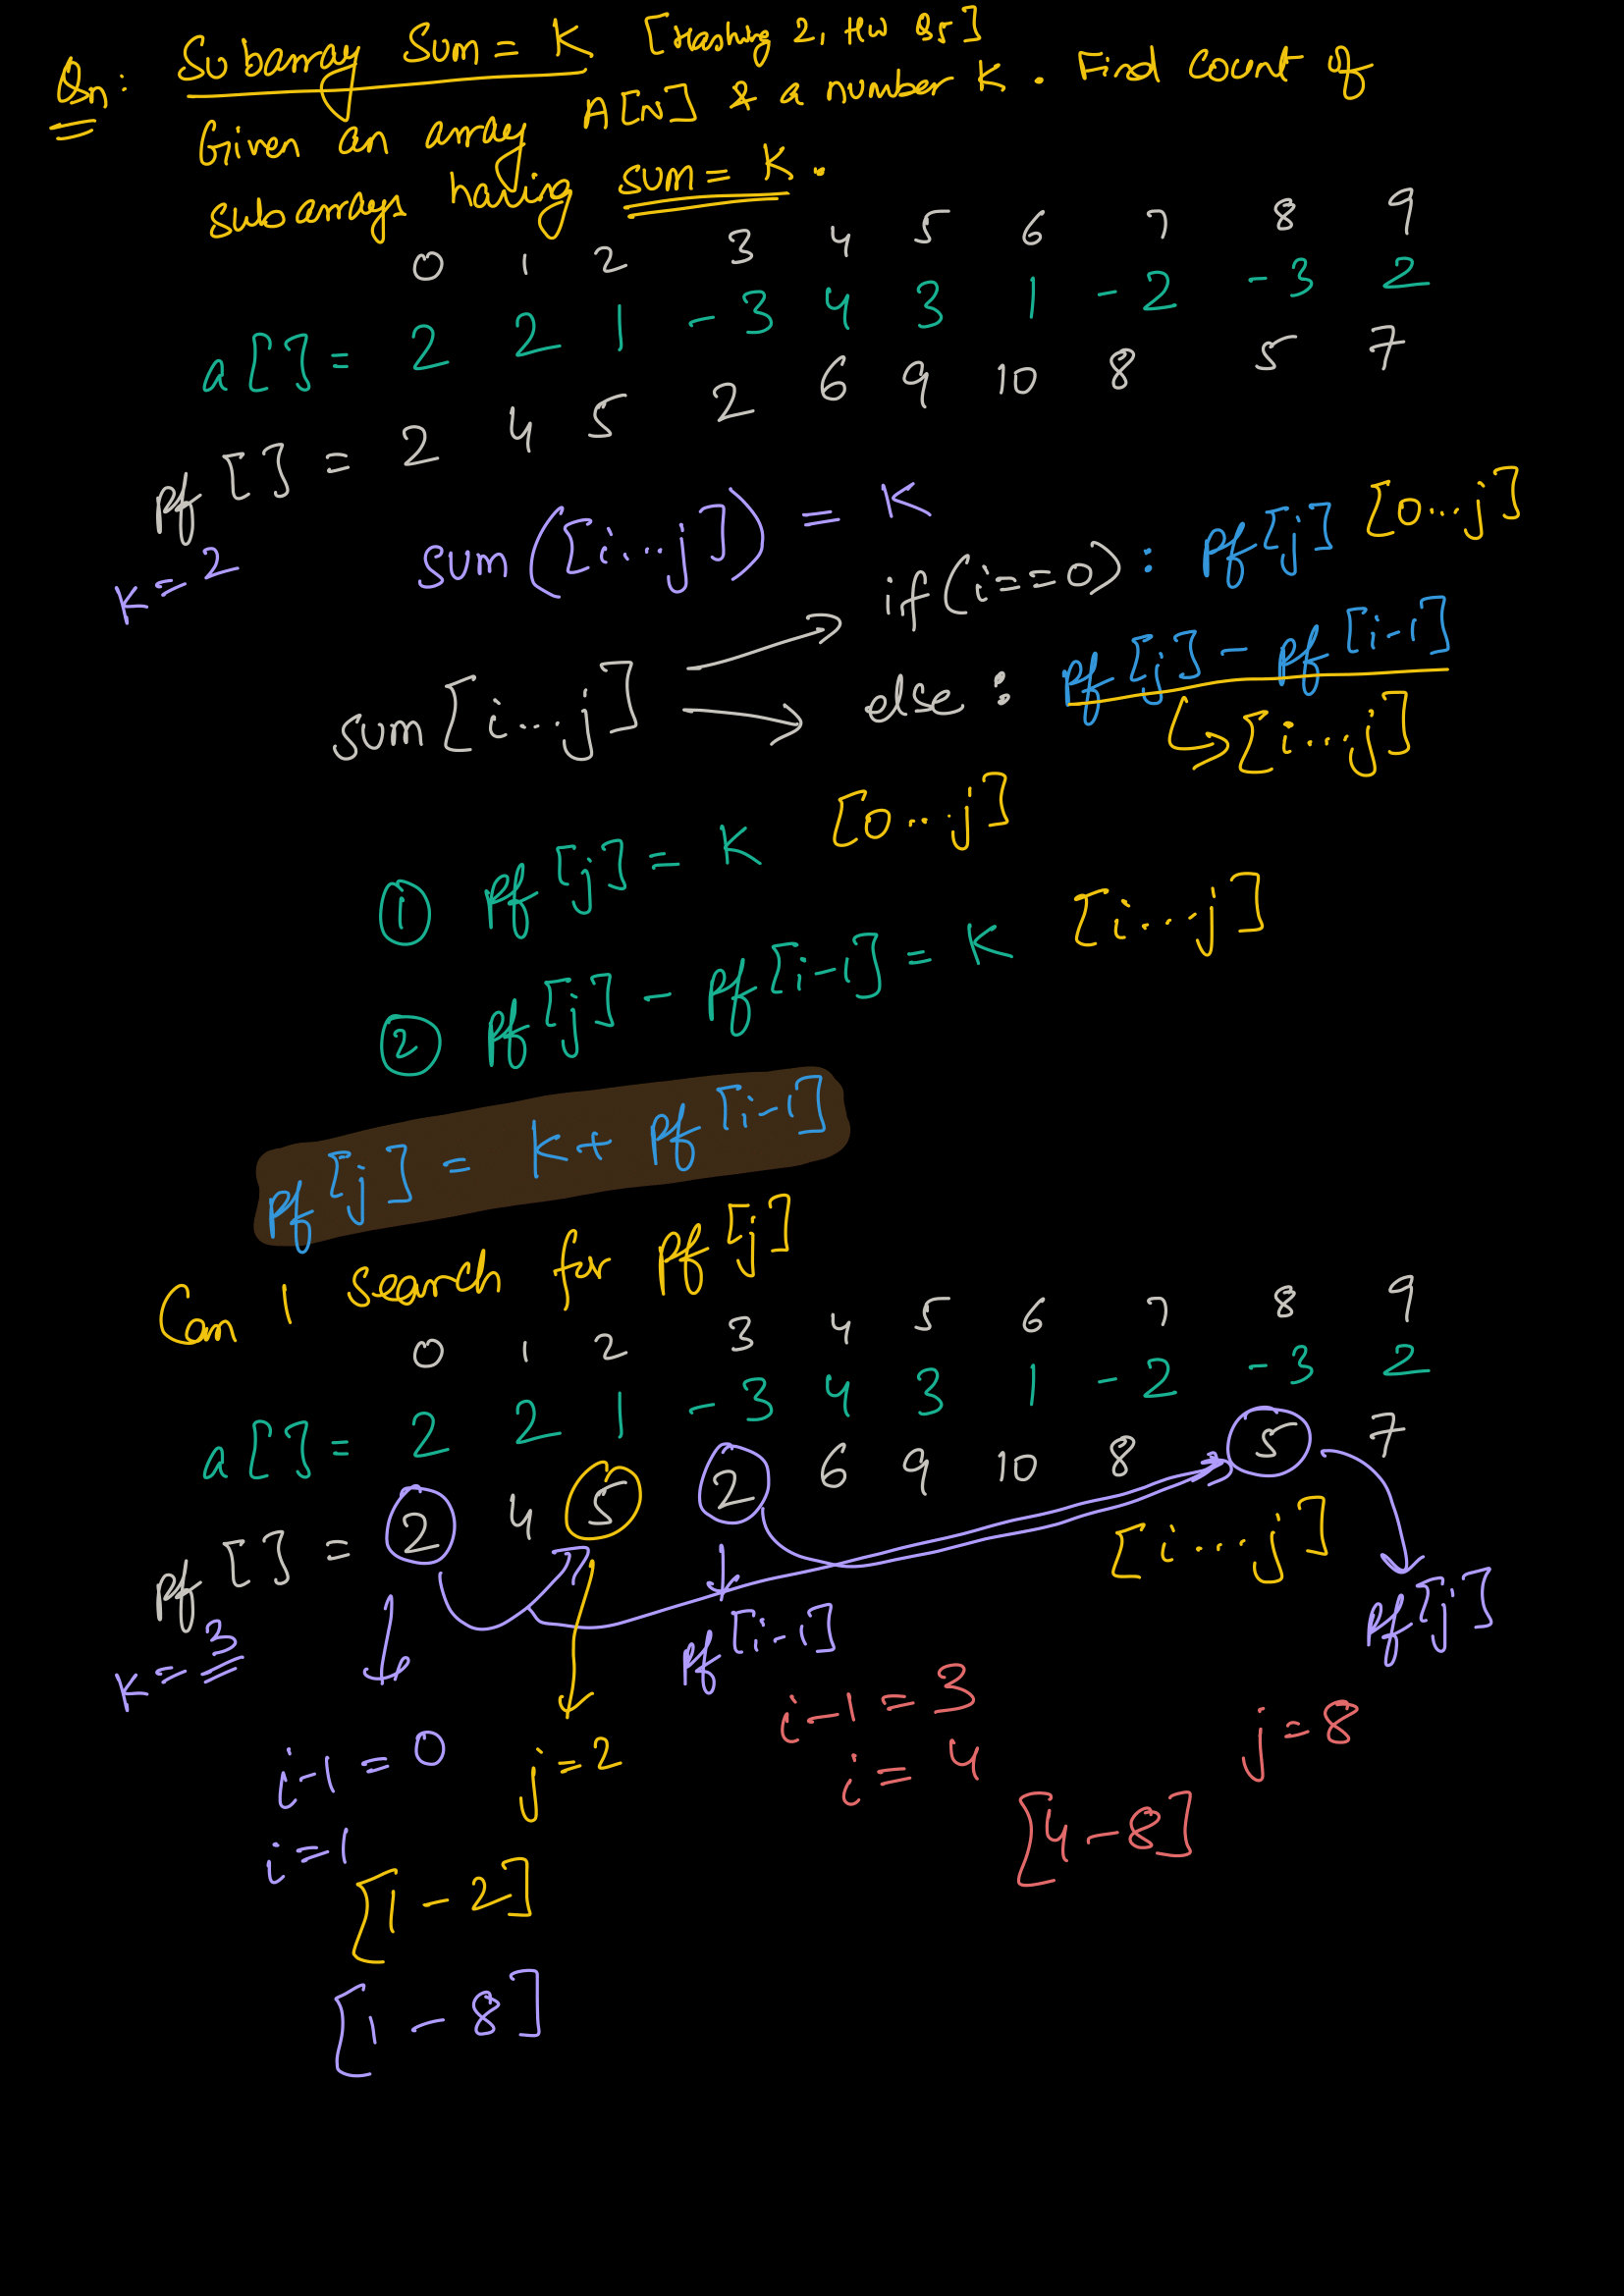 Qn: Subarray Sum = K [Hashing 2, HW Q5]
Given an array A[N] & a number K. Find count of
subarrays having sum = K.
0 1 2 3 4 5 6 7 8 9
a[] = 2 2 1 -3 4 3 1 -2 -3 2
pf[] = 2 4 5 2 6 9 10 8 5 7
K=2
sum([i...j]) = K
if(i==0): pf[j] [0...j]
sum[i...j]
else: pf[j] - pf[i-1]
[i...j]
① pf[j] = K [0...j]
② pf[j] - pf[i-1] = K [i...j]
pf[j] = K + pf[i-1]
Can I search for pf[j]
0 1 2 3 4 5 6 7 8 9
a[] = 2 2 1 -3 4 3 1 -2 -3 2
pf[] = 2 4 5 2 6 9 10 8 5 7
[i...j]
K=3
pf[i-1]
pf[j]
i-1=0 j=2 i-1=3 j=8
i=1 i=4
[1-2] [4-8]
[1-8]